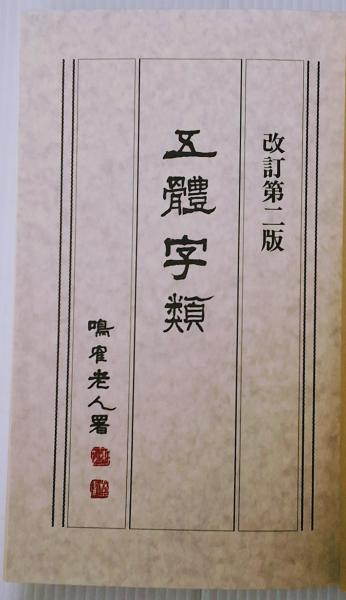 改訂第二版
五體字類
鳴隺老人署